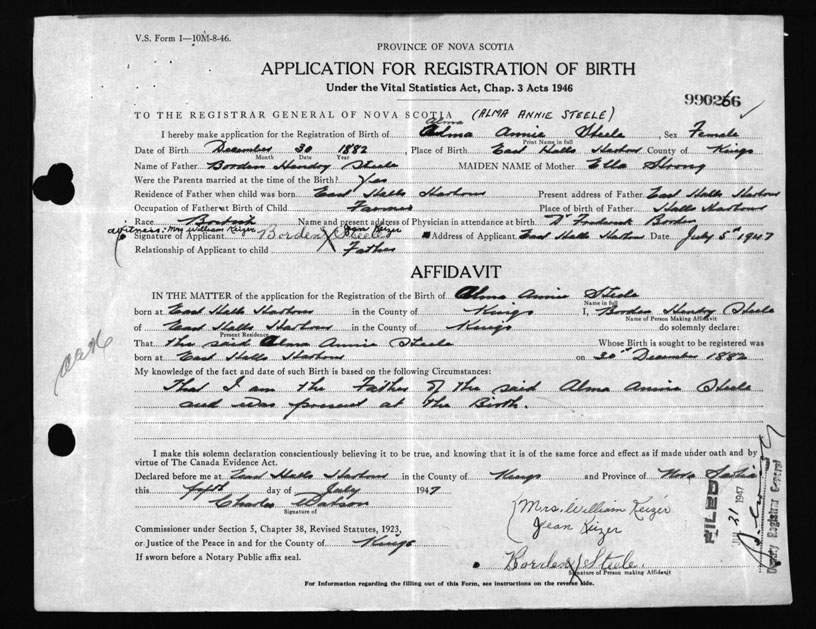 V.S. Form 1—10M-8-46.
PROVINCE OF NOVA SCOTIA
APPLICATION FOR REGISTRATION OF BIRTH
Under the Vital Statistics Act, Chap. 3 Acts 1946
990266
TO THE REGISTRAR GENERAL OF NOVA SCOTIA (ALMA ANNIE STEELE)
Alma
I hereby make application for the Registration of Birth of Alma Annie Steele, Sex Female
Print Name in full
Date of Birth December 30 1882, Place of Birth East Halls Harbour County of Kings
Month Date Year
Name of Father Borden Hendry Steele MAIDEN NAME of Mother Ella Strong
Were the Parents married at the time of the Birth? Yes
Residence of Father when child was born East Halls Harbour Present address of Father East Halls Harbour
Occupation of Father at Birth of Child Farmer Place of birth of Father Halls Harbour
Race British Name and present address of Physician in attendance at birth Dr Frederick Borden
witness: Mrs William Keizer Jean Keizer
Signature of Applicant Borden X Steele Address of Applicant East Halls Harbour Date July 5th 1947
Relationship of Applicant to child Father
AFFIDAVIT
IN THE MATTER of the application for the Registration of the Birth of Alma Annie Steele
Name in full
born at East Halls Harbour in the County of Kings I, Borden Hendry Steele
Name of Person Making Affidavit
of East Halls Harbour in the County of Kings do solemnly declare:
Present Residence
That the said Alma Annie Steele Whose Birth is sought to be registered was
born at East Halls Harbour on 30th December 1882
My knowledge of the fact and date of such Birth is based on the following Circumstances:
That I am the Father of the said Alma Annie Steele
and was present at the Birth.
I make this solemn declaration conscientiously believing it to be true, and knowing that it is of the same force and effect as if made under oath and by
virtue of The Canada Evidence Act.
Declared before me at East Halls Harbour in the County of Kings and Province of Nova Scotia
this fifth day of July 1947
Charles Watson
Signature of
Mrs. William Keizer
Jean Keizer
Commissioner under Section 5, Chapter 38, Revised Statutes, 1923,
or Justice of the Peace in and for the County of Kings
If sworn before a Notary Public affix seal.
Borden X Steele
Signature of Person making Affidavit
For Information regarding the filling out of this Form, see instructions on the reverse side.
FILED
JUL 21 1947
Deputy Registrar General